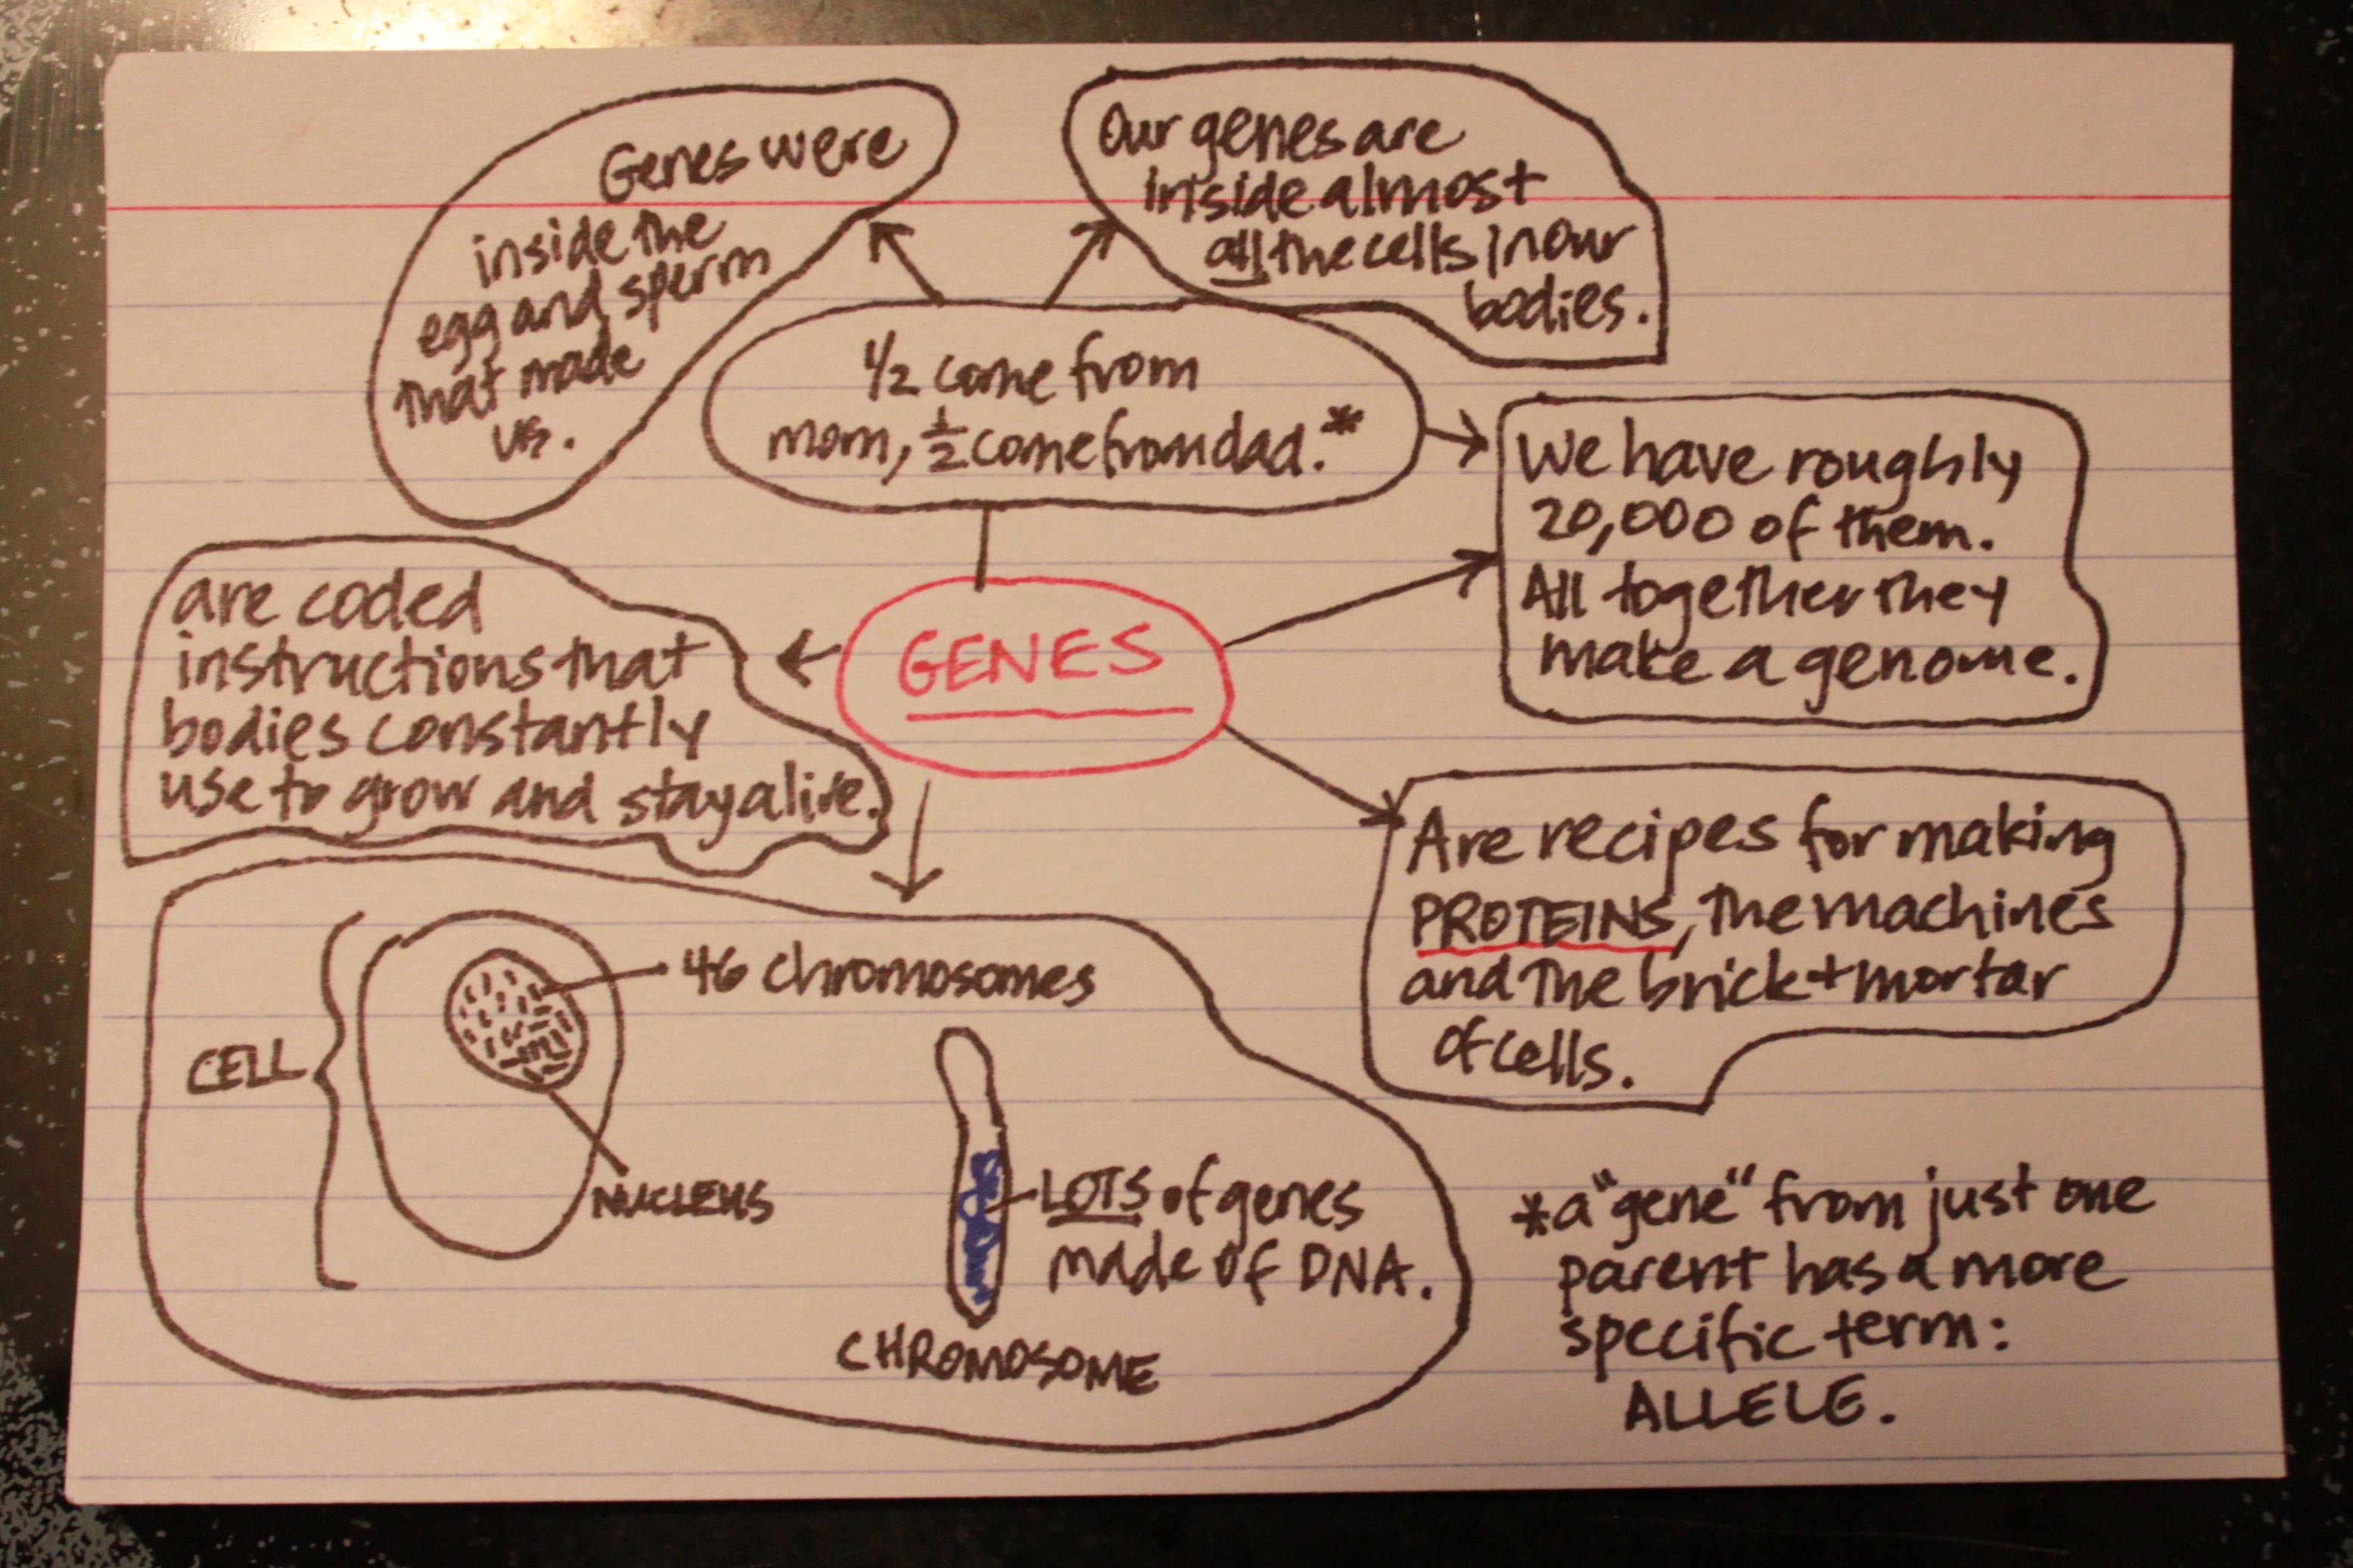 Genes were
inside the
egg and sperm
that made
us.
Our genes are
inside almost
all the cells in our
bodies.
1/2 come from
mom, 1/2 come from dad.*
We have roughly
20,000 of them.
All together they
make a genome.
are coded
instructions that
bodies constantly
use to grow and stay alive.
GENES
Are recipes for making
PROTEINS, the machines
and the brick + mortar
of cells.
CELL
46 chromosomes
NUCLEUS
LOTS of genes
made of DNA.
CHROMOSOME
*a "gene" from just one
parent has a more
specific term:
ALLELE.